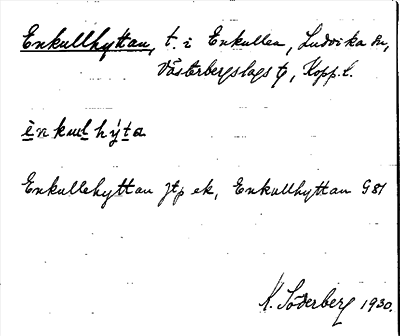 Enkullhyttan, t. i Enkullen, Ludvika sn,
Västerbergslags tg, Kopp. l.
ènkɯlhỳta
Enkullehyttan jtp ek, Enkullhyttan G 81
K. Söderberg 1930.